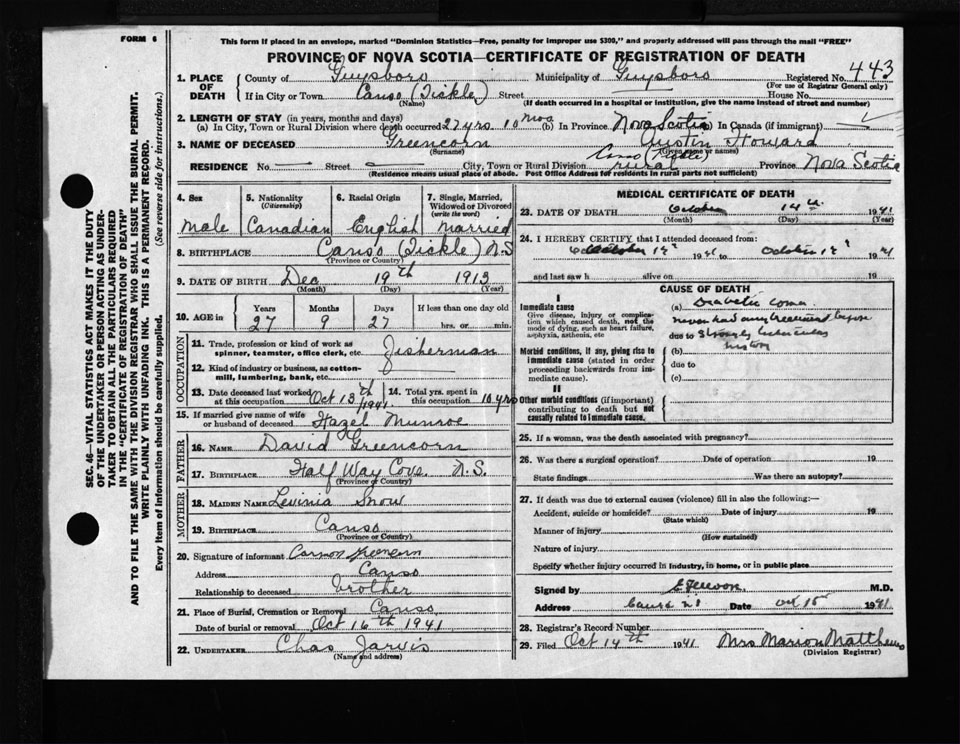 FORM 6
This form if placed in an envelope, marked "Dominion Statistics—Free, penalty for improper use $300," and properly addressed will pass through the mail "FREE"
PROVINCE OF NOVA SCOTIA—CERTIFICATE OF REGISTRATION OF DEATH
1. PLACE OF DEATH
County of Guysboro Municipality of Guysboro Registered No. 443
(For use of Registrar General only)
If in City or Town Canso (Tickle) Street House No.
(Name) (If death occurred in a hospital or institution, give the name instead of street and number)
2. LENGTH OF STAY (in years, months and days)
(a) In City, Town or Rural Division where death occurred 27 yrs 10 mos (b) In Province Nova Scotia (c) In Canada (if immigrant)
3. NAME OF DECEASED Greencorn Austin Howard
(Surname) (Given name or names)
Canso (Tickle)
RESIDENCE No. — Street — City, Town or Rural Division rural Province Nova Scotia
(Residence means usual place of abode. Post Office Address for residents in rural parts not sufficient)
4. Sex
Male
5. Nationality
(Citizenship)
Canadian
6. Racial Origin
English
7. Single, Married, Widowed or Divorced
(write the word)
Married
8. BIRTHPLACE Canso (Tickle) N.S
(Province or Country)
9. DATE OF BIRTH Dec 19th 1913
(Month) (Day) (Year)
10. AGE
Years Months Days If less than one day old
27 9 27 hrs. or min.
OCCUPATION
11. Trade, profession or kind of work as
spinner, teamster, office clerk, etc. Fisherman
12. Kind of industry or business, as cotton-
mill, lumbering, bank, etc.
13. Date deceased last worked at this occupation Oct 13th 1941
14. Total yrs. spent in this occupation 10 yrs
15. If married give name of wife
or husband of deceased Hazel Munroe
FATHER
16. NAME David Greencorn
17. BIRTHPLACE Half Way Cove N.S.
(Province or Country)
MOTHER
18. MAIDEN NAME Levinia Snow
19. BIRTHPLACE Canso
(Province or Country)
20. Signature of informant Greencorn
Address Canso
Relationship to deceased brother
21. Place of Burial, Cremation or Removal Canso
Date of burial or removal Oct 16th 1941
22. UNDERTAKER Chas Jarvis
(Name and address)
MEDICAL CERTIFICATE OF DEATH
23. DATE OF DEATH October 14th 1941
(Month) (Day) (Year)
24. I HEREBY CERTIFY that I attended deceased from:
October 19 to October 1941
and last saw h alive on 19
CAUSE OF DEATH
I
Immediate cause
Give disease, injury or complica-
tion which caused death, not the
mode of dying, such as heart failure,
asphyxia, asthenia, etc
(a) Diabetic coma
never had any treatment before
due to
history
Morbid conditions, if any, giving rise to
immediate cause (stated in order
proceeding backwards from im-
mediate cause).
(b)
due to
(c)
II
Other morbid conditions (if important)
contributing to death but not
causally related to immediate cause.
25. If a woman, was the death associated with pregnancy?
26. Was there a surgical operation? Date of operation 19
State findings Was there an autopsy?
27. If death was due to external causes (violence) fill in also the following:—
Accident, suicide or homicide? Date of injury 19
(State which)
Manner of injury
(How sustained)
Nature of injury
Specify whether injury occurred in industry, in home, or in public place
Signed by M.D.
Address Canso N S Date Oct 15 1941
28. Registrar's Record Number
29. Filed Oct 14th 1941 Mrs Marion Matthews
(Division Registrar)
SEC. 46—VITAL STATISTICS ACT MAKES IT THE DUTY
OF THE UNDERTAKER OR PERSON ACTING AS UNDER-
TAKER TO OBTAIN ALL THE PARTICULARS REQUIRED
IN THE "CERTIFICATE OF REGISTRATION OF DEATH"
AND TO FILE THE SAME WITH THE DIVISION REGISTRAR WHO SHALL ISSUE THE BURIAL PERMIT.
WRITE PLAINLY WITH UNFADING INK. THIS IS A PERMANENT RECORD.
Every item of information should be carefully supplied. (See reverse side for instructions.)